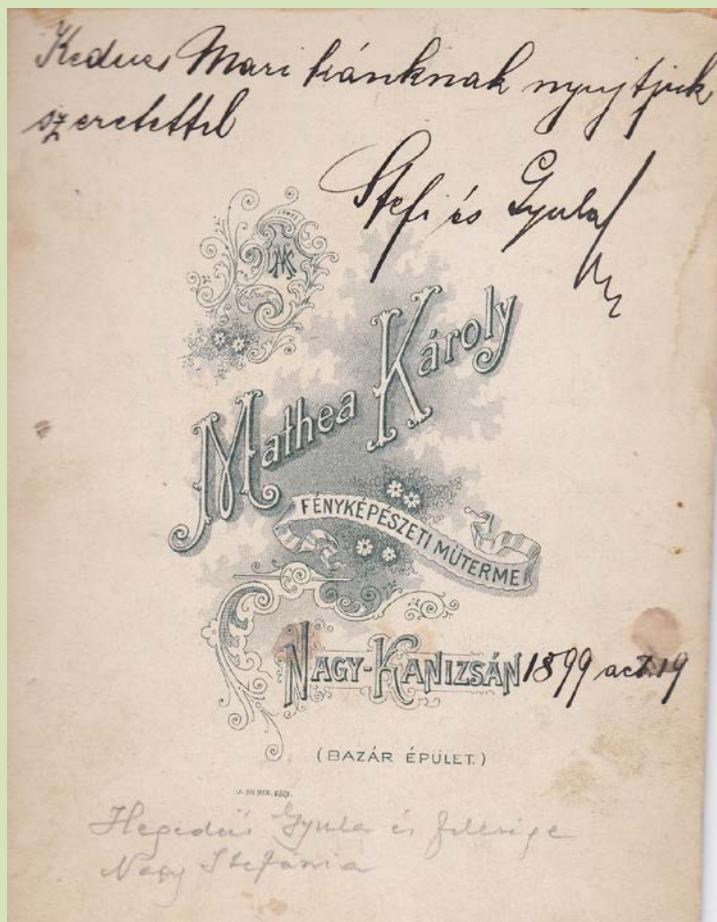 Kedves Mari kánknak nyujtjuk
szeretettel
Stefi és Gyula
MK
Mathea Károly
FÉNYKÉPÉSZETI MŰTERME
NAGY-KANIZSÁN 1899 oct. 19
(BAZÁR ÉPÜLET.)
Hegedüs Gyula és felesége
Nagy Stefánia